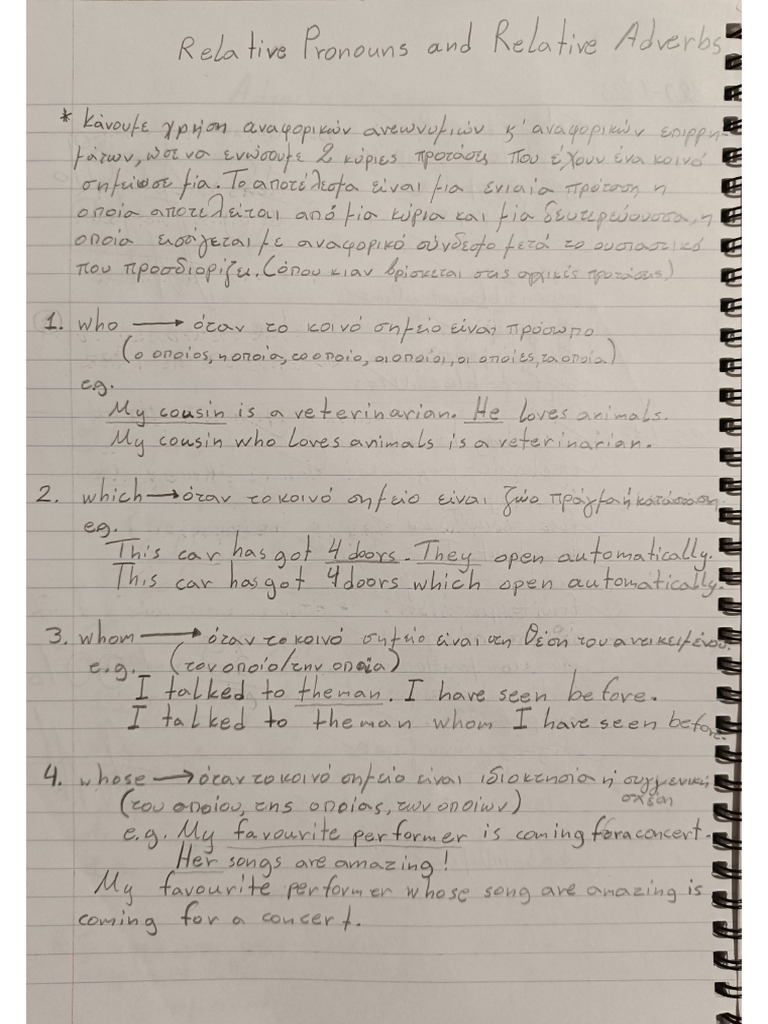 Relative Pronouns and Relative Adverbs
* Κάνουμε χρήση αναφορικών αντωνυμιών κ' αναφορικών επιρρη-
μάτων, ώστε να ενώσουμε 2 κύριες προτάσεις που έχουν ένα κοινό
σημείο μία. Το αποτέλεσμα είναι μια ενιαία πρόταση η
οποία αποτελείται από μία κύρια και μία δευτερεύουσα, η
οποία εισάγεται με αναφορικό σύνδεσμο μετά το ουσιαστικό
που προσδιορίζει. (όπου κι αν βρίσκεται στις αρχικές προτάσεις)
1. who → όταν το κοινό σημείο είναι πρόσωπο
(ο οποίος, η οποία, το οποίο, οι οποίοι, οι οποίες, τα οποία)
e.g.
My cousin is a veterinarian. He loves animals.
My cousin who loves animals is a veterinarian.
2. which → όταν το κοινό σημείο είναι ζώο πράγμα ή κατάσταση.
eg.
This car has got 4 doors. They open automatically.
This car has got 4 doors which open automatically.
3. whom → όταν το κοινό σημείο είναι στη θέση του αντικειμένου.
e.g. (τον οποίο/την οποία)
I talked to the man. I have seen before.
I talked to the man whom I have seen before.
4. whose → όταν το κοινό σημείο είναι ιδιοκτησία ή συγγενική
σχέση
(του οποίου, της οποίας, των οποίων)
e.g. My favourite performer is coming for a concert.
Her songs are amazing!
My favourite performer whose song are amazing is
coming for a concert.